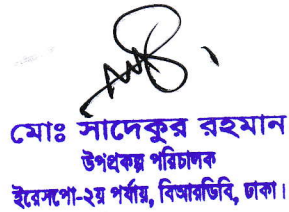 মোঃ সাদেকুর রহমান
উপপ্রকল্প পরিচালক
ইরেসপো-২য় পর্যায়, বিআরডিবি, ঢাকা।